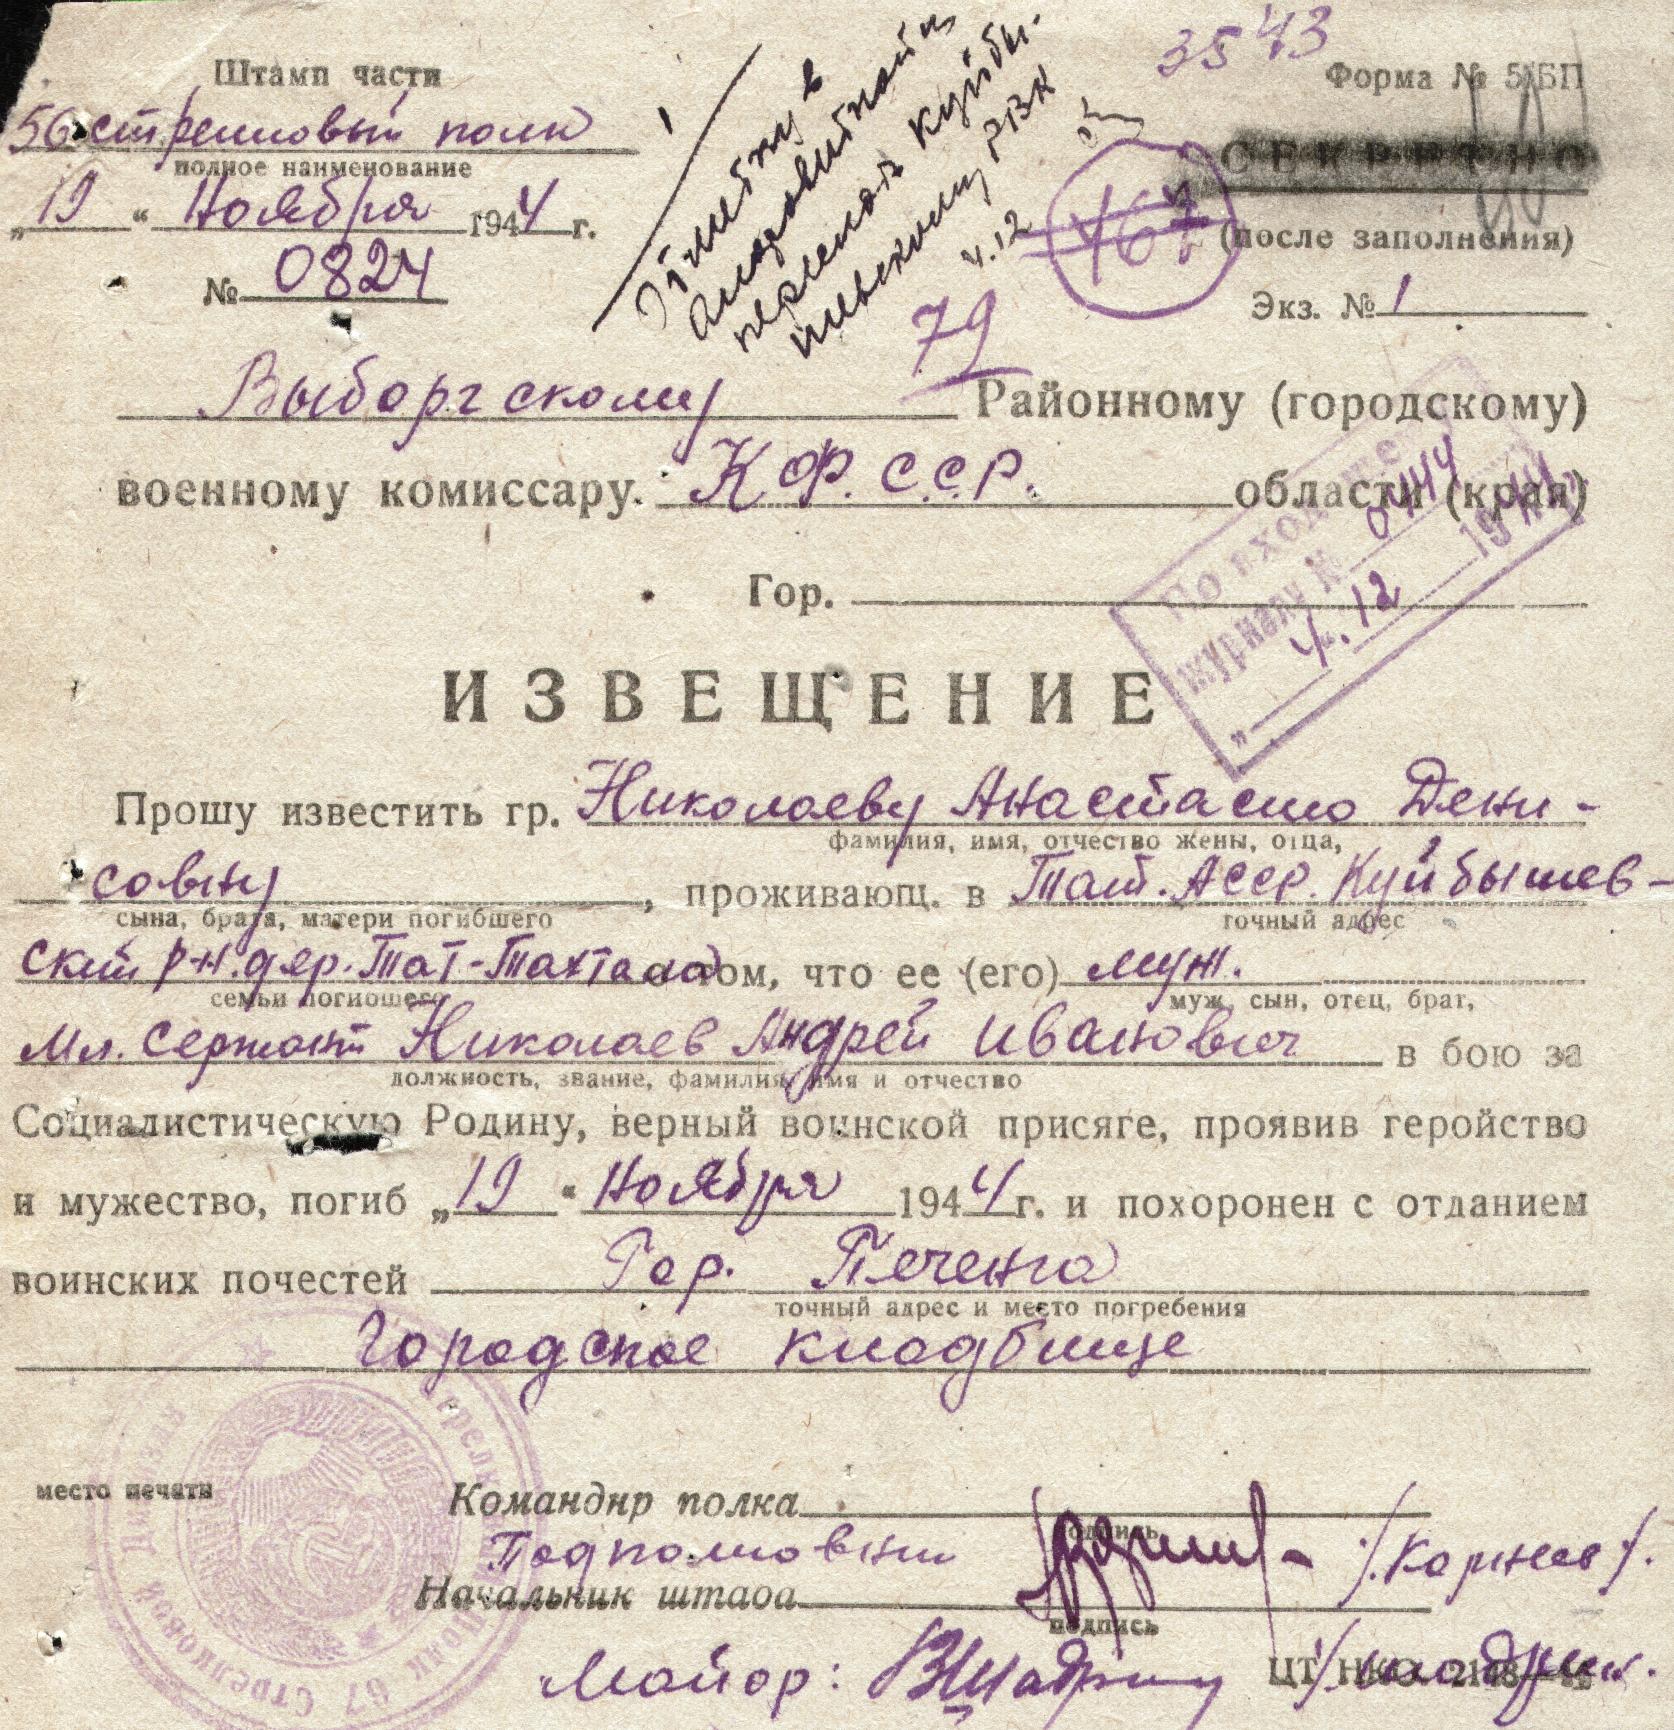 35 43
Штамп части
Форма № 5/БП
56 стрелковый полк
полное наименование
СЕКРЕТНО
„19“ Ноября 1944 г.
(после заполнения)
№ 0824
Экз. № 1
Отметку в
алфавитной и
переслать Куйбы-
шевскому РВК
4.12
467
79
Выборгскому Районному (городскому)
военному комиссару. К.Ф.С.С.Р. области (края)
Гор.
По входящ
журналу №
„4“.12 1944
ИЗВЕЩЕНИЕ
Прошу известить гр. Николаеву Анастасию Дени-
фамилия, имя, отчество жены, отца,
совну, проживающ. в Тат. Асср. Куйбышев-
сына, брата, матери погибшего точный адрес
ский р-н. дер. Тат-Тахтала о том, что ее (его) муж.
семьи погибшего муж, сын, отец, брат,
Мл. Сержант Николаев Андрей Иванович в бою за
должность, звание, фамилия, имя и отчество
Социалистическую Родину, верный воинской присяге, проявив геройство
и мужество, погиб „19“ Ноября 1944 г. и похоронен с отданием
воинских почестей Гор. Печенга
точный адрес и место погребения
Городское кладбище
место печати
Командир полка
подпись
Подполковник /Корнев/.
Начальник штаба
подпись
Майор:
ЦТ НКО 2148
Стрелковый Полк 67 Стрелковой Дивизии